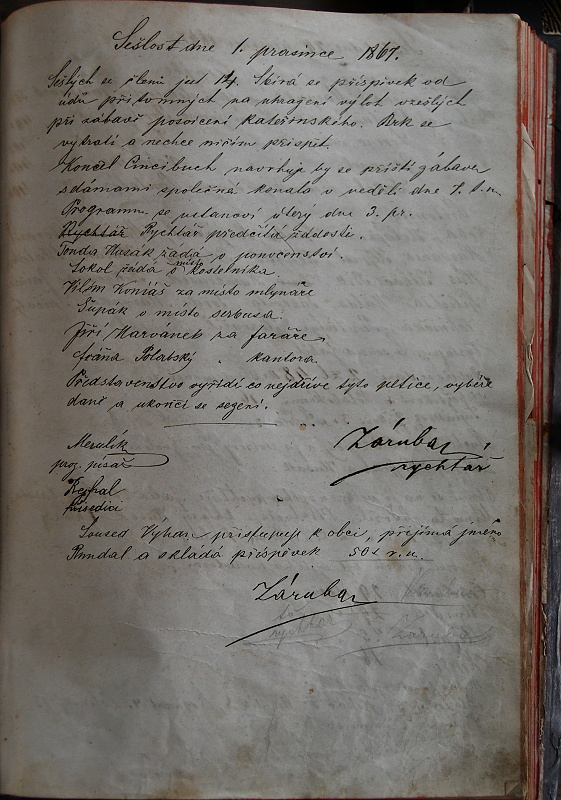 Sešlost dne 1. prasince 1867.
Sešlých se členů jest 14. Sbírá se příspěvek od
údů přítomných na uhražení výloh vzešlých
při zábavě posvícení kateřinského. Brk se
vytratí a nechce ničím přispět.
Konšel Cincibuch navrhuje by se příští zábava
s dámami společná konala v neděli dne 7. t. m.
Programm se ustanoví úterý dne 3. pr.
Rychtář Rychtář předčítá žádosti.
Tonda Husák žádá o ponocenství.
Sokol žádá o místo kostelníka.
Vilém Koniáš za místo mlynáře
Šupák o místo serbusa.
Jiří Marvánek za faráře
Polabský kantora
Představenstvo vyřídí co nejdříve tyto petice, vybéře
daně a ukončí se sezení.
Zárubar
rychtář
písař
přísedící
Soused Vyhan přistupuje k obci, přejímá jméno
Rundal a skládá příspěvek 50 r. u.
Zárubar
rychtář